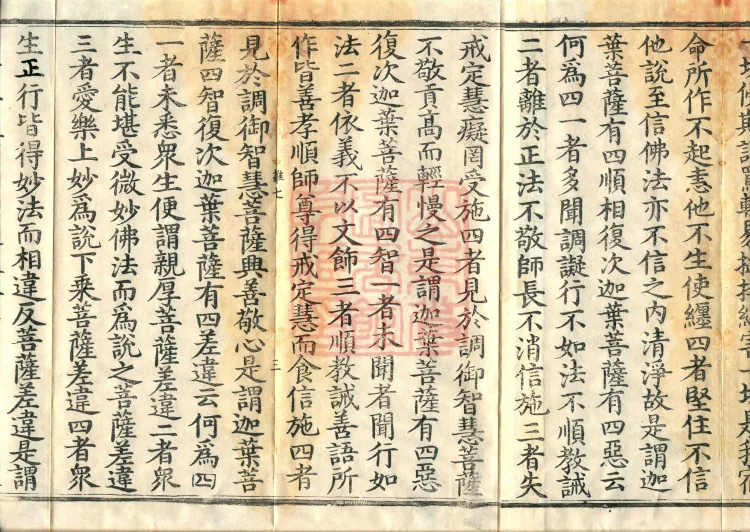 命所作不起恚他不生使纏四者堅住不信
他說至信佛法亦不信之内清淨故是謂迦
葉菩薩有四順相復次迦葉菩薩有四惡云
何爲四一者多聞調譺行不如法不順教誡
二者離於正法不敬師長不消信施三者失
戒定慧癡罔受施四者見於調御智慧菩薩
不敬貢高而輕慢之是謂迦葉菩薩有四惡
復次迦葉菩薩有四智一者未聞者聞行如
法二者依義不以文飾三者順教誡善語所
作皆善孝順師尊得戒定慧而食信施四者
七 三
見於調御智慧菩薩興善敬心是謂迦葉菩
薩四智復次迦葉菩薩有四差違云何爲四
一者未悉衆生便謂親厚菩薩差違二者衆
生不能堪受微妙佛法而爲說之菩薩差違
三者愛樂上妙爲說下乘菩薩差違四者衆
生正行皆得妙法而相違反菩薩差違是謂